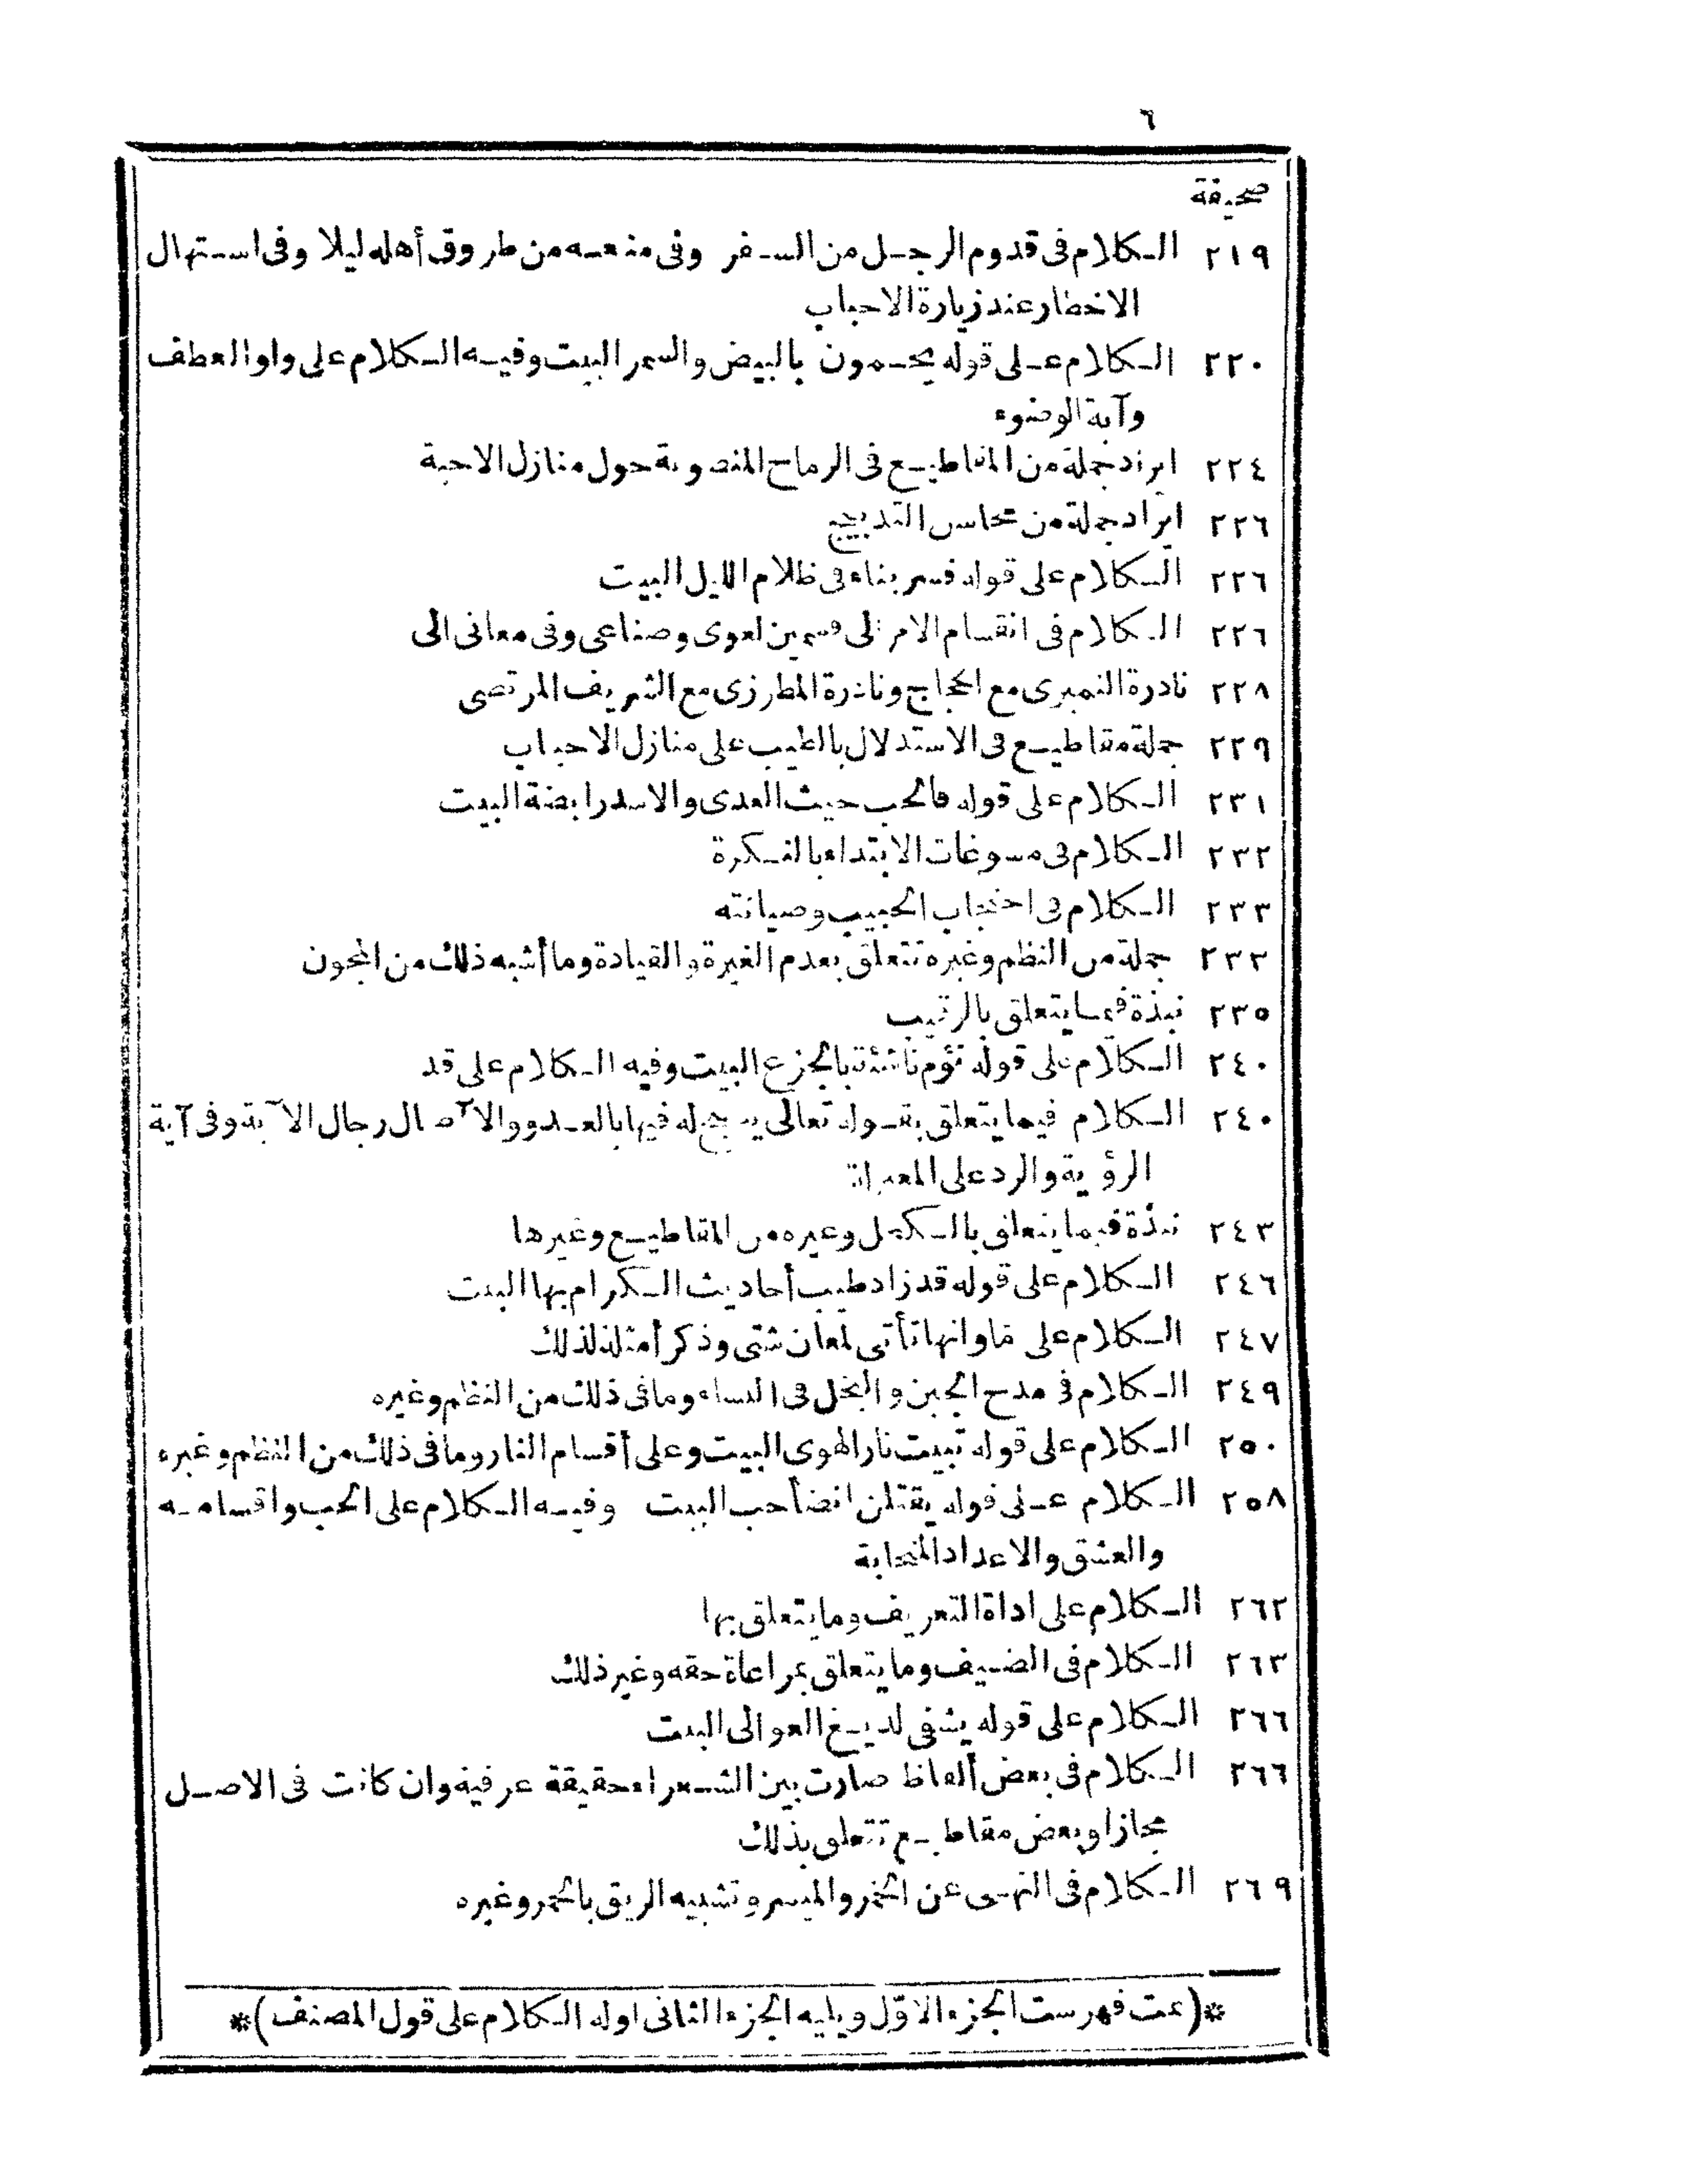 ٦
صحيفة
٢١٩ الكلام فى قدوم الرجل من السفر وفى منعه من طروق أهله ليلا وفى استهال
الاخطار عند زيارة الاحباب
٢٢٠ الكلام على قوله يحمون بالبيض والسمر البيت وفيه الكلام على واو العطف
وآية الوضوء
٢٢٤ ايراد جملة من المقاطيع فى الرماح المنصوبة حول منازل الاحبة
٢٢٦ ايراد جملة من محاسن التدبيج
٢٢٦ الكلام على قوله فسر بنا فى ظلام الليل البيت
٢٢٦ الكلام فى انقسام الامر الى قسمين لغوى وصناعى وفى معانى الى
٢٢٨ نادرة النميرى مع الحجاج ونادرة المطرزى مع الشريف المرتضى
٢٢٩ جملة مقاطيع فى الاستدلال بالطيب على منازل الاحباب
٢٣١ الكلام على قوله فالحب حيث العدى والاسد رابضة البيت
٢٣٢ الكلام فى مسوغات الابتداء بالنكرة
٢٣٣ الكلام فى احتجاب الحبيب وصيانته
٢٣٣ جملة من النظم وغيره تتعلق بعدم الغيرة والقيادة وما أشبه ذلك من المجون
٢٣٥ نبذة فيما يتعلق بالرقيب
٢٤٠ الكلام على قوله نؤم ناشئة بالجزع البيت وفيه الكلام على قد
٢٤٠ الكلام فيما يتعلق بقوله تعالى يسبح له فيها بالغدو والآصال رجال الآية وفى آية
الرؤية والرد على المعتزلة
٢٤٣ نبذة فيما يتعلق بالكحل وغيره من المقاطيع وغيرها
٢٤٦ الكلام على قوله قد زاد طيب أحاديث الكرام بها البيت
٢٤٧ الكلام على ما وانها تأتى لمعان شتى وذكر أمثلة لذلك
٢٤٩ الكلام فى مدح الجبن والبخل فى النساء وما فى ذلك من النظم وغيره
٢٥٠ الكلام على قوله تبيت نار الهوى البيت وعلى أقسام النار وما فى ذلك من النظم وغيره
٢٥٨ الكلام على قوله يقتلن انضأ حب البيت وفيه الكلام على الحب واقسامه
والعشق والاعداد المتحابة
٢٦٢ الكلام على اداة التعريف وما يتعلق بها
٢٦٣ الكلام فى الضيف وما يتعلق بمراعاة حقه وغير ذلك
٢٦٦ الكلام على قوله يشفى لديغ العوالى البيت
٢٦٦ الكلام فى بعض ألفاظ صارت بين الشعراء حقيقة عرفية وان كانت فى الاصل
مجازا وبعض مقاطيع تتعلق بذلك
٢٦٩ الكلام فى النهى عن الخمر والميسر وتشبيه الريق بالخمر وغيره
*(تمت فهرست الجزء الاوّل ويليه الجزء الثانى اوله الكلام على قول المصنف)*